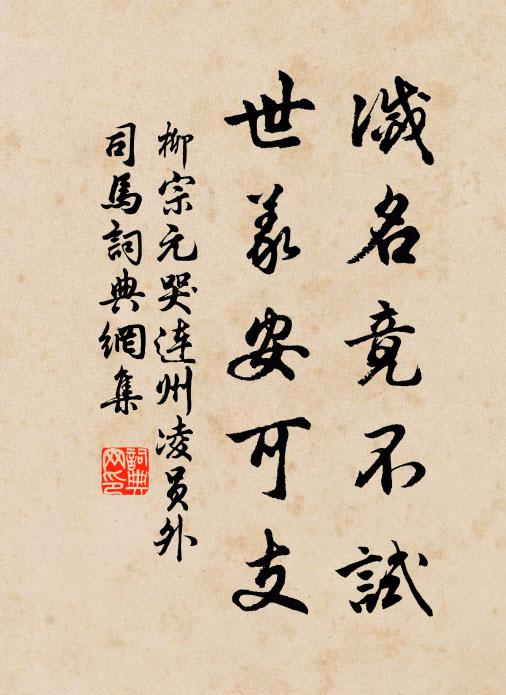 滅名竟不試
世義安可支
柳宗元哭連州凌員外
司馬詞典網集
詞典網印